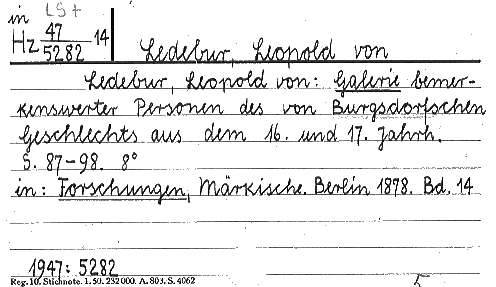 in LS+
Hz 47/5282 14
Ledebur, Leopold von
Ledebur, Leopold von: Galerie bemer-
kenswerter Personen des von Burgsdorfschen
Geschlechts aus dem 16. und 17. Jahrh.
S. 87-98. 8°
in: Forschungen, Märkische. Berlin 1878. Bd. 14
1947: 5282
Reg. 10. Stichnote. 1. 50. 232000. A. 803. S. 4062